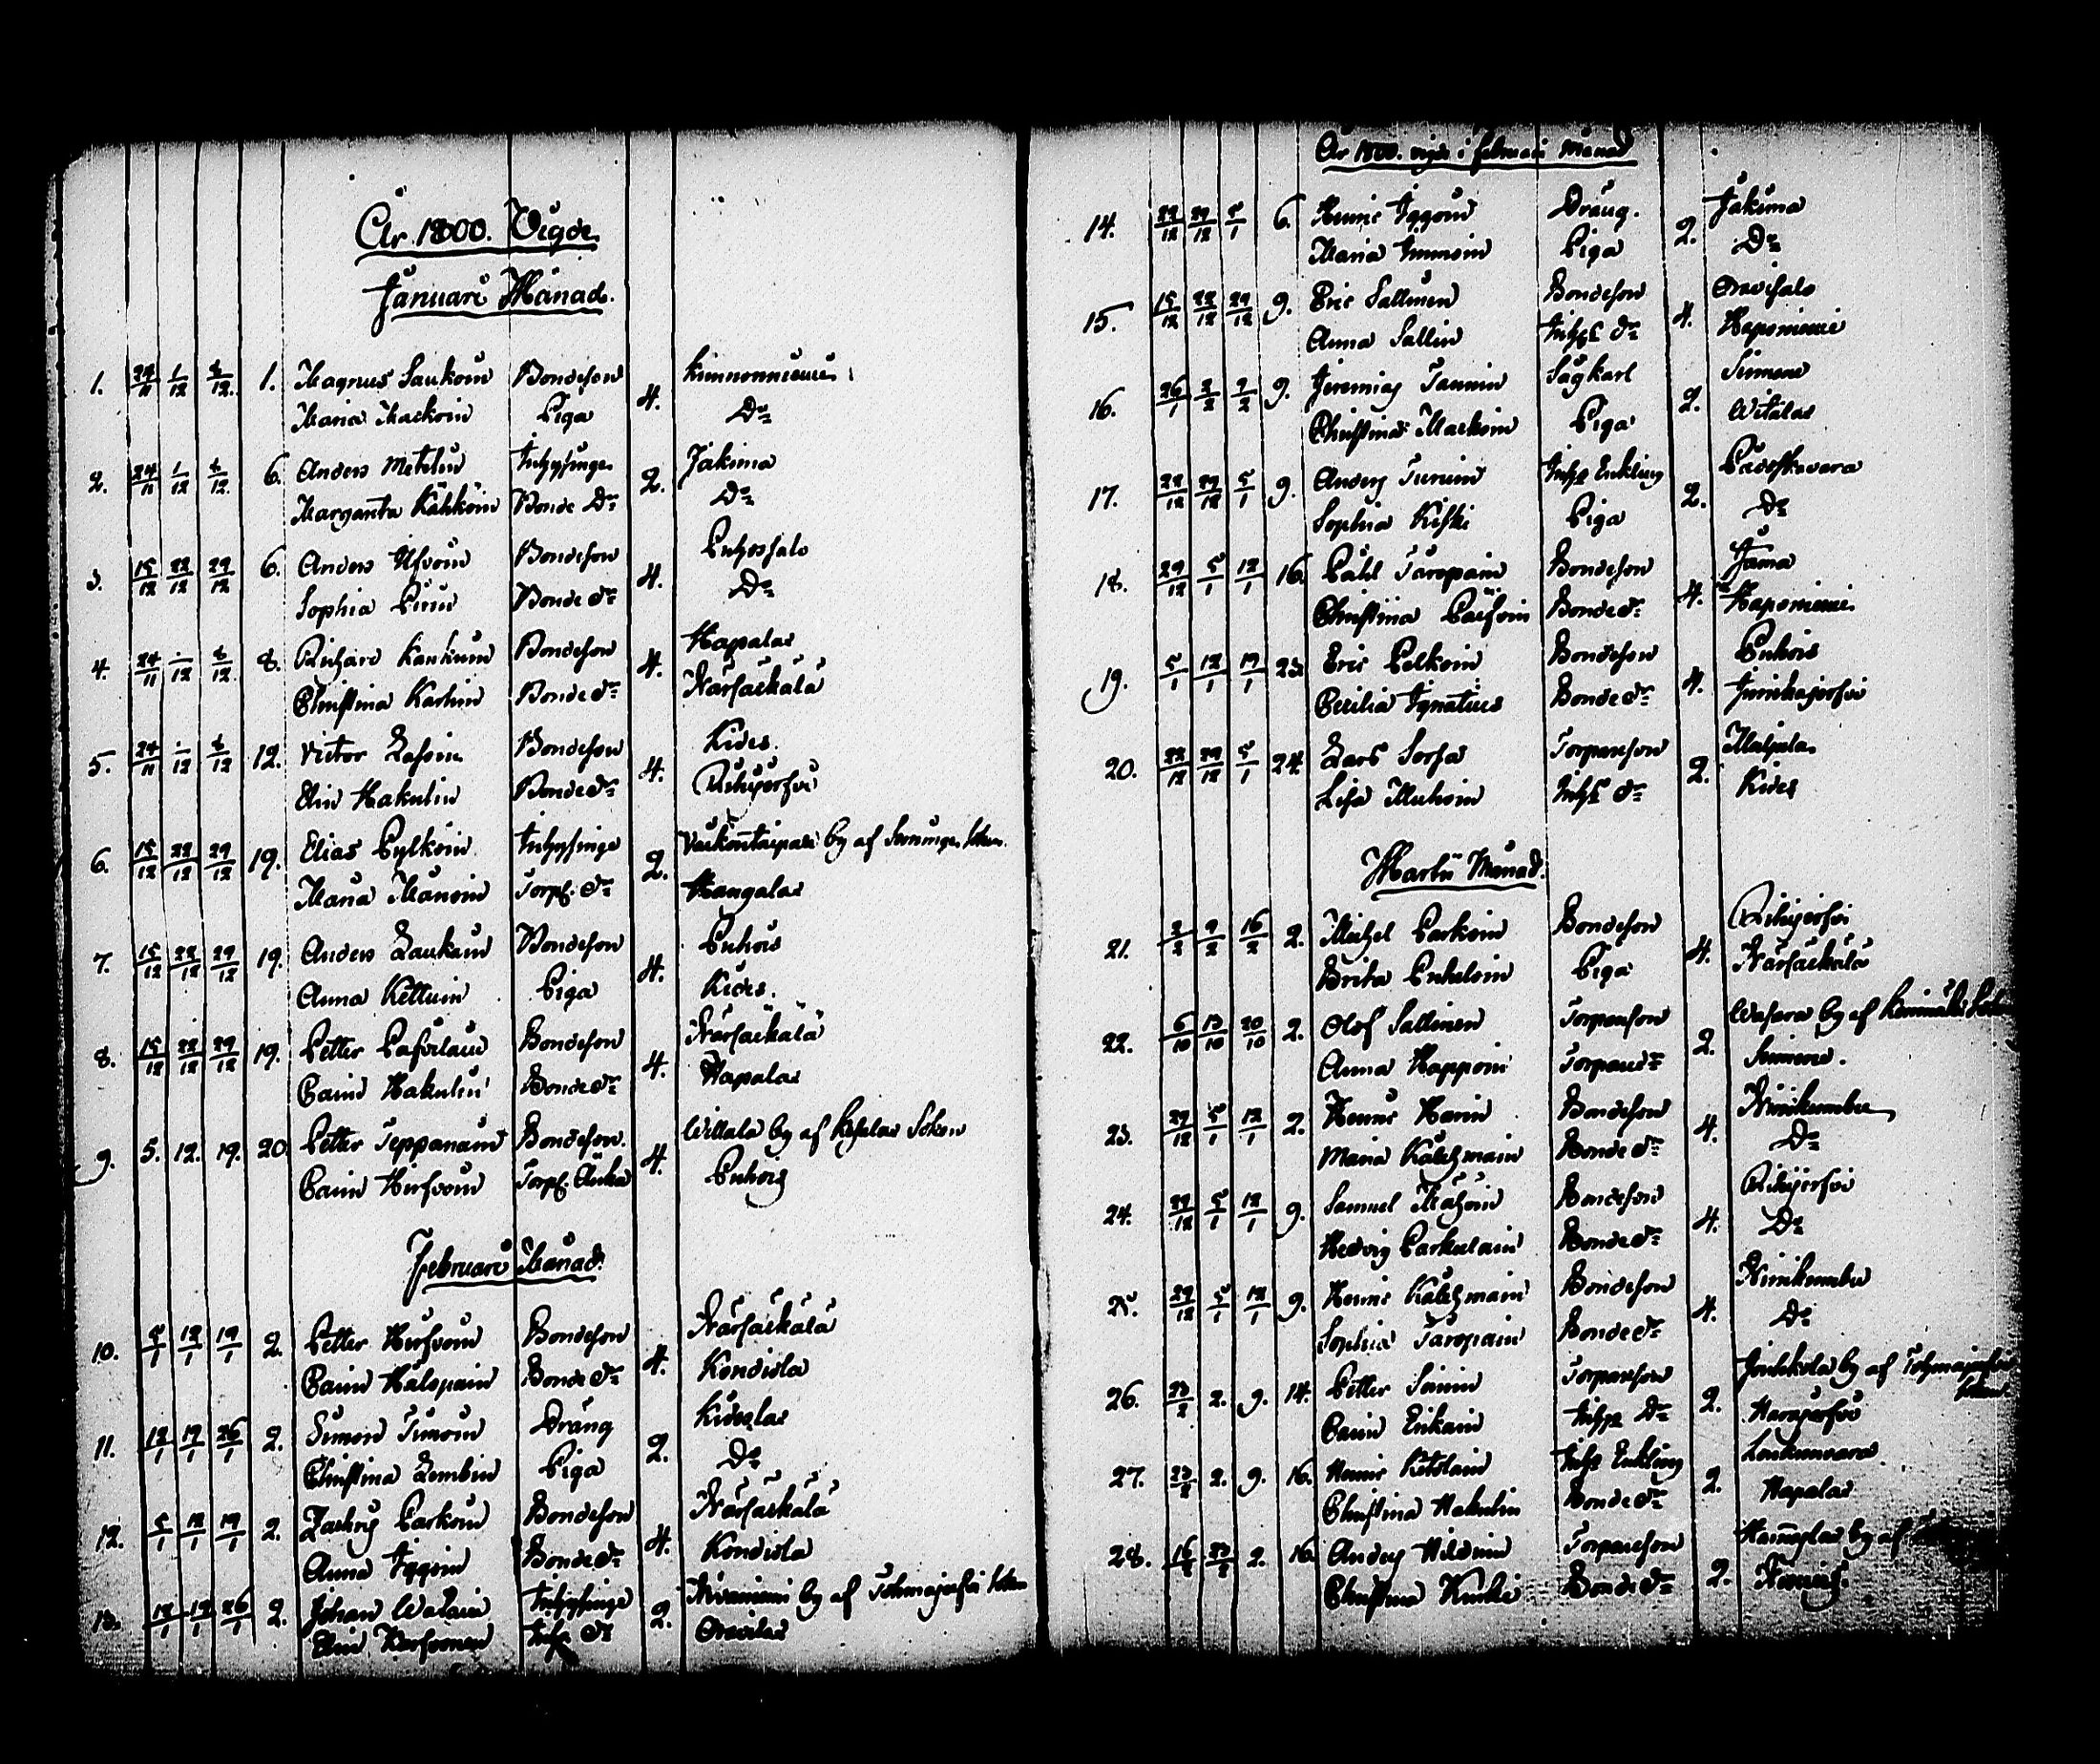 År 1800. Vigde
Januari Månad.
1. 24/11 1/12 8/12. 1. Magnus Saukoin Bondeson 4. Kumonniemi
Maria Mackoin Piga Do
2. 24/11 1/12 8/12. 6. Anders Metelin Inhysinge 2. Jakima
Margareta Kähköin Bonde Dr Do
3. 15/12 22/12 29/12 6. Anders Ufvoin Bondeson 4. Puhossalo
Sophia Pirin Bonde dr Do
4. 24/11 1/12 8/12. 8. Richard Kankuin Bondeson 4. Hapalax
Christina Karhin Bonde dr Närsäckälä
5. 24/11 1/12 8/12 12. Victor Lasoin Bondeson 4. Kides.
Elin Hakulin Bonde dr Rihijerfvi
6. 15/12 22/12 29/12 19. Elias Pylköin Inhysinge 2. by af Soken
Maria Mänöin Torp. dr Kangalax
7. 15/12 22/12 29/12 19. Anders Laukain Bondeson 4. Puhois
Anna Kettuin Piga Kides.
8. 15/12 22/12 29/12 19. Petter Bondeson 4. Närsäckälä
Carin Hakulin Bonde dr Hapalax
9. 5. 12. 19. 20 Petter Teppanain Bondeson. 4. Willala by af Kesälax Soken
Carin Hirfvoin Torp. Änka Puhois
Februari Månad.
10. 5/1 12/1 19/1 2. Petter Hirfvoin Bondeson 4. Närsäckälä
Carin Halopain Bonde dr Kondiola
11. 12/1 19/1 26/1 2. Simon Timoin Dräng 2. Kideslax
Christina Lembin Piga Do
12. 5/1 12/1 19/1 2. Zachris Parkoin Bondeson 4. Närsäckälä
Anna Iggoin Bonde dr Kondiola
13. 12/1 19/1 26/1 2. Johan Walain Inhysinge 2. Niiraniemi by af Tohmajerfvi Soken
Elin Inhs dr Oravilax
År 1800. vigde i Februari Månad
14. 22/12 29/12 5/1 6. Henric Iggoin Dräng. 2. Jakima
Maria Immoin Piga Do
15. 15/12 22/12 29/12 9. Eric Sallinen Bondeson 4. Oravisalo
Anna Sallin Inhys dr Haponiemi
16. 26/1 2/2 9/2 9. Jeremias Tannin Sågkarl 2. Simona
Christina Mackoin Piga Witalax
17. 22/12 29/12 5/1 9. Anders Turuin Inhys Enkling 2. Päätskavara
Sophia Kiski Piga Do
18. 29/12 5/1 12/1 16. Påhl Taropain Bondeson 4. Jama
Christina Päifvin Bonde dr Haponiemi
19. 5/1 12/1 19/1 23. Eric Pelkoin Bondeson 4. Puhois
Cecilia Ignatius Bonde dr Juurikajerfvi
20. 22/12 29/12 5/1 24. Lars Sorsa Torpareson 2. Muljula
Lisa Muhoin Inhys dr Kides
Martii Månad.
21. 2/2 9/2 16/2 2. Michel Parkoin Bondeson 4. Rihijerfvi
Brita Puhaloin Piga Närsäckälä
22. 6/10 13/10 20/10 2. Olof Sallinen Torpareson 2. Wehara by af Kerimäki Soken
Anna Happoin Torpare dr Suimona.
23. 29/12 5/1 12/1 2. Henric Harin Bondeson 4. Niinikumbu
Maria Kälchmain Bonde dr Do
24. 29/12 5/1 12/1 9. Samuel Mahoin Bondeson 4. Rihijerfvi
Hedvig Parkulain Bonde dr Do
25. 29/12 5/1 12/1 9. Henric Kälchmain Bondeson 4. Niinikumbu
Sophia Taropain Bonde dr Do
26. 23/2 2. 9. 14. Petter Soinin Torpareson 2. Jouhkola by af Tohmajerfvi
Soken
Carin Erikäin Inhys Dr Harajerfvi
27. 23/2 2. 9. 16. Henric Kitolain Inhys Enkling 2. Loukunvara
Christina Hakulin Bonde dr Hapalax
28. 16/2 23/2 2. 16. Anders Hildoin Torpareson 2. by af
Christina Kurki Bonde dr